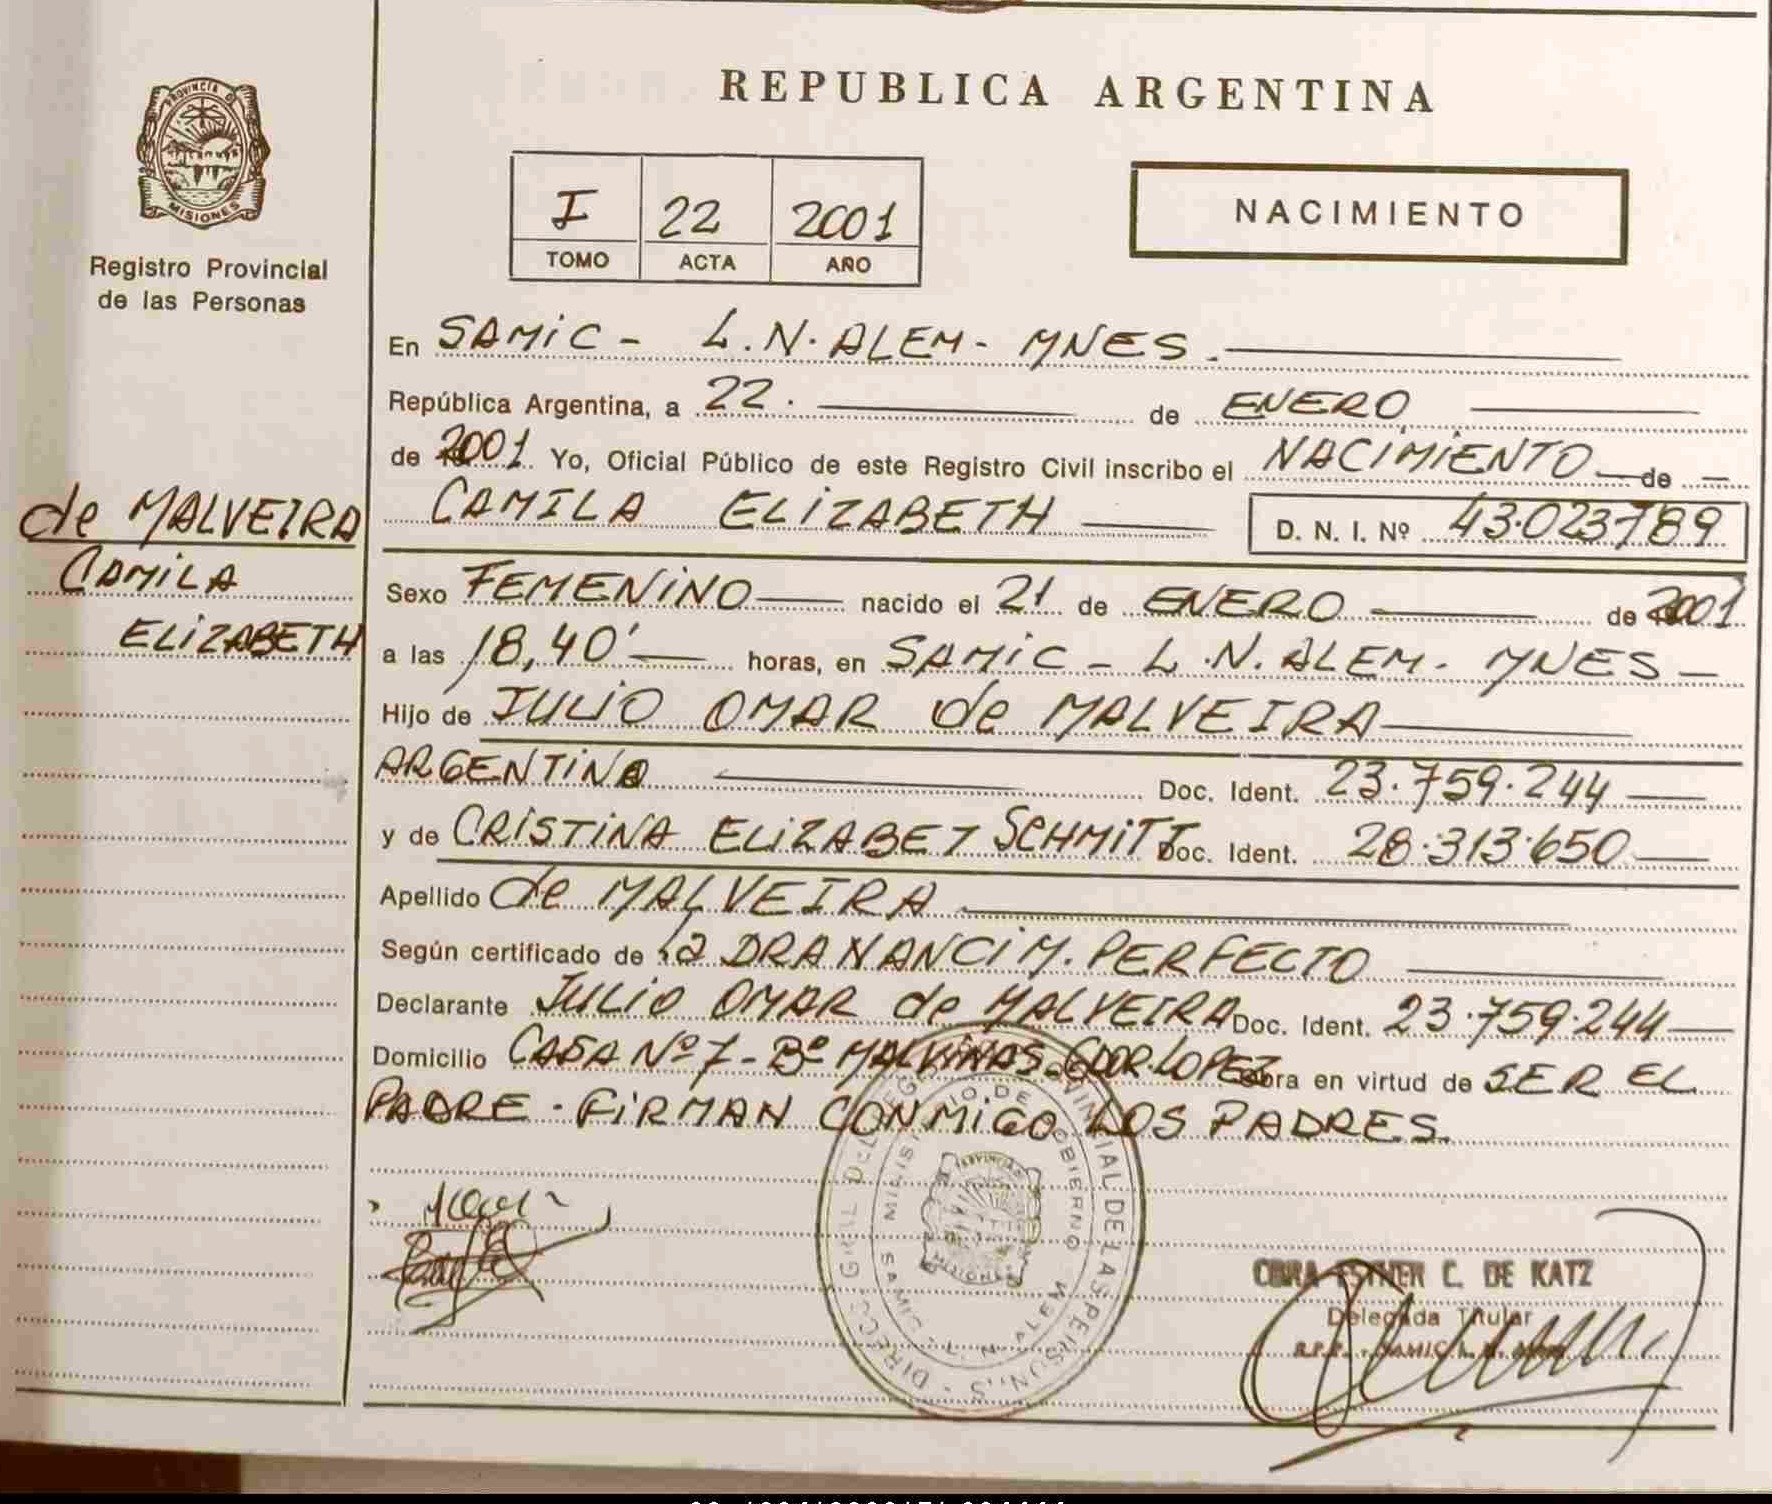 REPUBLICA ARGENTINA
PROVINCIA D
MISIONES
Registro Provincial
de las Personas
I 22 2001
TOMO ACTA AÑO
NACIMIENTO
En SAMIC - L.N. ALEM - MNES.
República Argentina, a 22. de ENERO
de 2001. Yo, Oficial Público de este Registro Civil inscribo el NACIMIENTO de
CAMILA ELIZABETH D. N. I. Nº 43.023789
de MALVEIRA
CAMILA
ELIZABETH
Sexo FEMENINO nacido el 21 de ENERO de 2001
a las 18,40' horas, en SAMIC - L.N. ALEM - MNES -
Hijo de JULIO OMAR de MALVEIRA
ARGENTINO Doc. Ident. 23.759.244
y de CRISTINA ELIZABET SCHMITT Doc. Ident. 28.313.650
Apellido de MALVEIRA
Según certificado de la DRA NANCI M. PERFECTO
Declarante JULIO OMAR de MALVEIRA Doc. Ident. 23.759.244
Domicilio CASA Nº 7 - Bº MALVINAS - GDOR. LOPEZ obra en virtud de SER EL
PADRE - FIRMAN CONMIGO LOS PADRES.
PROVINCIA
MISIONES
L. N. ALEM
ESTHER C. DE KATZ
Delegada Titular